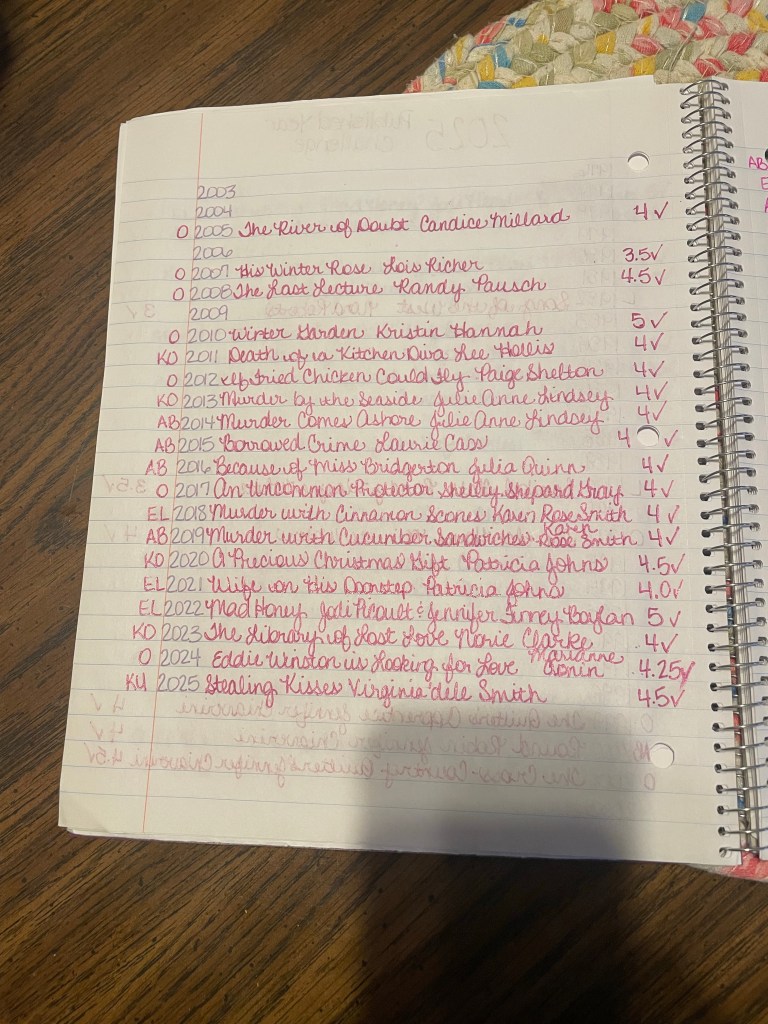 2003
2004
O 2005 The River of Doubt Candice Millard 4 ✓
2006
O 2007 His Winter Rose Lois Richer 3.5 ✓
O 2008 The Last Lecture Randy Pausch 4.5 ✓
2009
O 2010 Winter Garden Kristin Hannah 5 ✓
KO 2011 Death of a Kitchen Diva Lee Hollis 4 ✓
O 2012 If Fried Chicken Could Fly Paige Shelton 4 ✓
KO 2013 Murder by the Seaside Julie Anne Lindsey 4 ✓
AB 2014 Murder Comes Ashore Julie Anne Lindsey 4 ✓
AB 2015 Borrowed Crime Laurie Cass 4 ✓
AB 2016 Because of Miss Bridgerton Julia Quinn 4 ✓
O 2017 An Uncommon Protector Shelley Shepard Gray 4 ✓
EL 2018 Murder with Cinnamon Scones Karen Rose Smith 4 ✓
AB 2019 Murder with Cucumber Sandwiches Karen Rose Smith 4 ✓
KO 2020 A Precious Christmas Gift Patricia Johns 4.5 ✓
EL 2021 Wife on His Doorstep Patricia Johns 4.0 ✓
EL 2022 Mad Honey Jodi Picoult & Jennifer Finney Boylan 5 ✓
KO 2023 The Library of Lost Love Norie Clarke 4 ✓
O 2024 Eddie Winston is Looking for Love Marianne Cronin 4.25 ✓
KU 2025 Stealing Kisses Virginia'dele Smith 4.5 ✓
AB
E